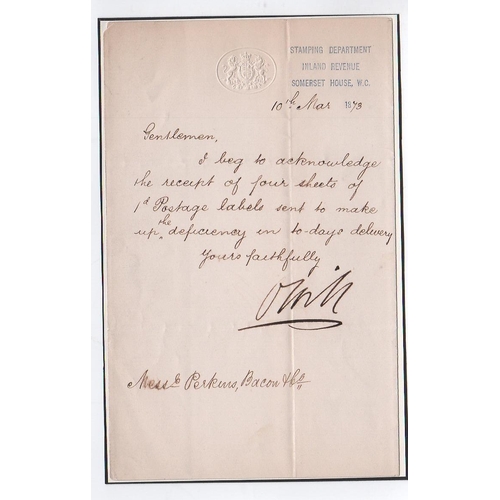 STAMPING DEPARTMENT
INLAND REVENUE
SOMERSET HOUSE, W.C.
10th Mar 1873
Gentlemen,
I beg to acknowledge
the receipt of four sheets of
1d Postage labels sent to make
up the deficiency in to-days delivery
Yours faithfully
Messrs Perkins, Bacon & Co